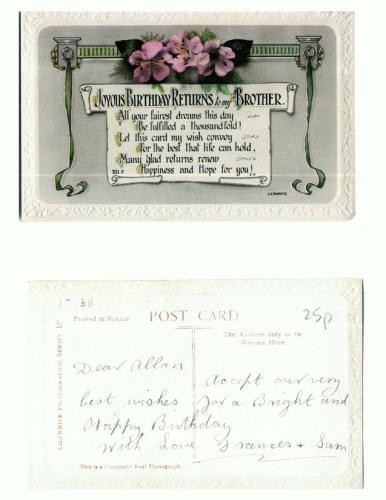 Joyous Birthday Returns to my Brother.
All your fairest dreams this day
Be fulfilled a thousandfold!
Let this card my wish convey
For the best that life can hold,
Many glad returns renew
Happiness and Hope for you!
POST CARD
25p
Printed in Britain
The Address only to be
Written Here
Dear Allan
Accept our very
best wishes for a Bright and
Happy Birthday
With Love Frances & Sam
This is a Real Photograph